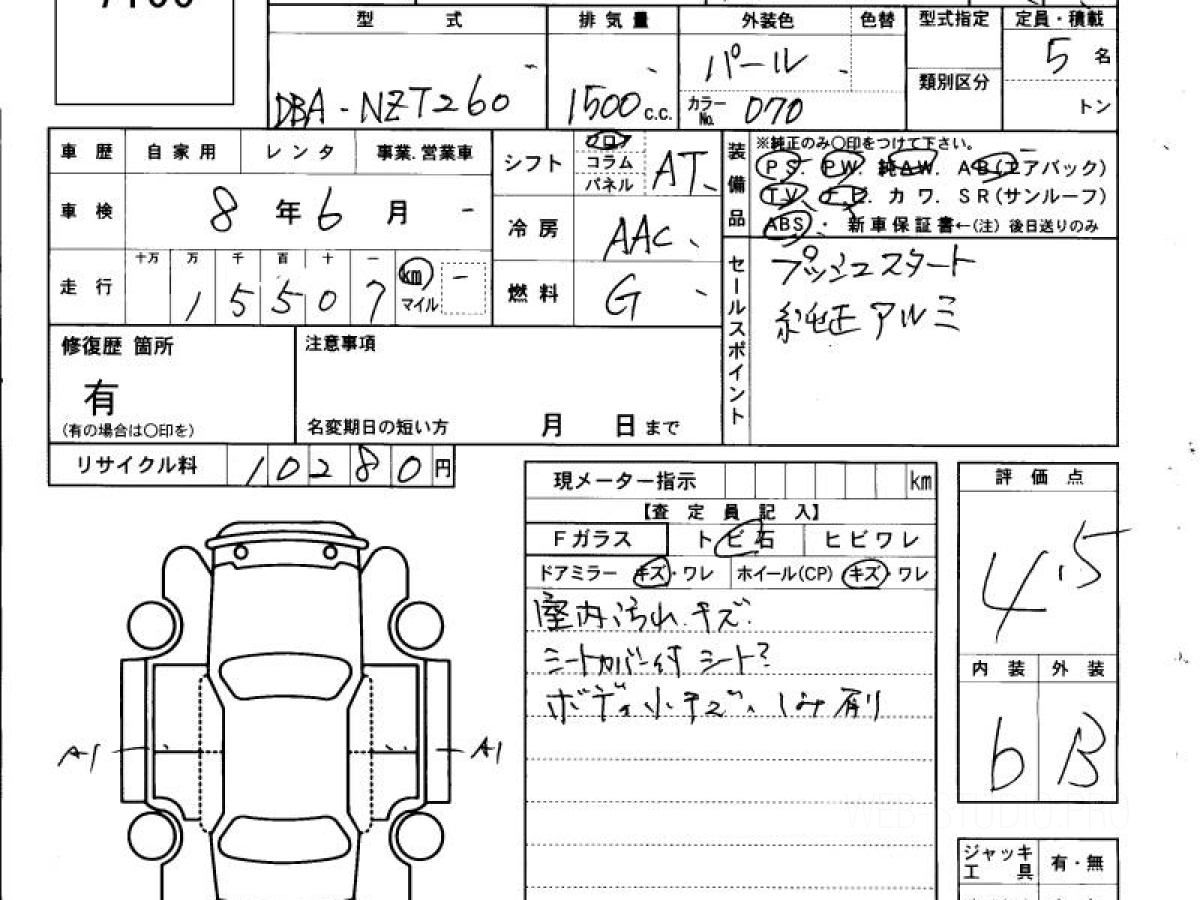 型 式 排 気 量 外装色 色替 型式指定 定員・積載
DBA - NZT260 1500 c.c. パール 5 名
カラーNo. 070 類別区分 トン
車 歴 自 家 用 レ ン タ 事業.営業車
車 検 8 年 6 月
走 行 十万 万 千 百 十 一
1 5 5 0 7 km マイル
シフト フロア コラム パネル AT
冷 房 AAC
燃 料 G
装備品 ※純正のみ〇印をつけて下さい。
PS. PW. 純AW. AB(エアバック)
TV. ナビ. カ ワ. SR(サンルーフ)
ABS. 新車保証書←(注) 後日送りのみ
セールスポイント プッシュスタート
純正アルミ
修復歴 箇所 注意事項
有
(有の場合は〇印を) 名変期日の短い方 月 日 まで
リサイクル料 10280 円
現メーター指示 km
【査 定 員 記 入】
Fガラス ト ビ 石 ヒ ビ ワ レ
ドアミラー キズ・ワレ ホイール(CP) キズ・ワレ
室内汚れ.キズ.
シートカバー付 シート?
ボディ小キズ、しみ有り
評 価 点
4.5
内 装 外 装
b B
A1 A1
ジャッキ 有・無
工 具
WEB-STUDIO.PRO